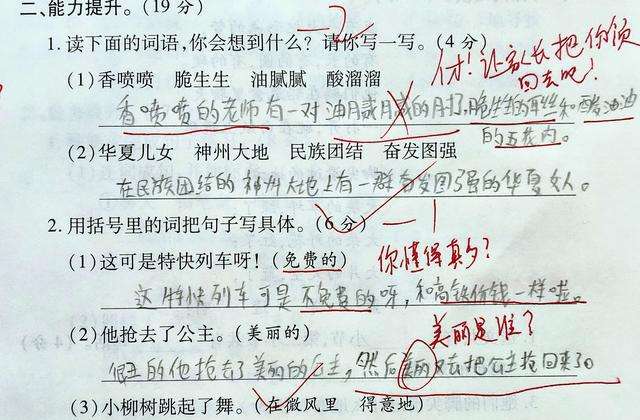 二、能力提升。(19分)
1.读下面的词语,你会想到什么?请你写一写。(4分)
(1)香喷喷 脆生生 油腻腻 酸溜溜
才!让家长把你领回去吧!
香喷喷的老师有一对油
的月
脆生生的耳丝和酸油油
的五花肉。
(2)华夏儿女 神州大地 民族团结 奋发图强
在民族团结的神州大地上有一群奋发图强的华夏女人。
2.用括号里的词把句子写具体。(6分) —1
(1)这可是特快列车呀!(免费的)
你懂得真多?
这特快列车可是不免费的呀,和高铁价钱一样啦。
(2)他抢去了公主。(美丽的)
美丽是谁?
很丑的他抢去了美丽的公主,然后美丽又去把公主抢回来了。
(3)小柳树跳起了舞。(在微风里 得意地)